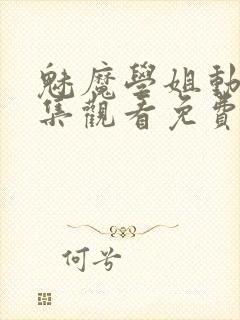 魅魔學姐動
集觀看免費
何兮